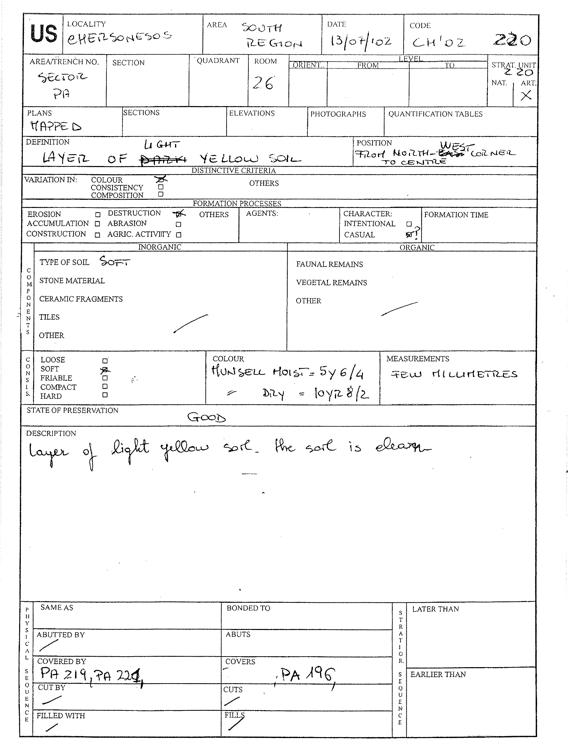 US
LOCALITY
CHERSONESOS
AREA SOUTH
REGION
DATE
13/07/02
CODE
CH'02 220
AREA/TRENCH NO.
SECTOR
PA
SECTION
QUADRANT
ROOM
26
LEVEL
ORIENT. FROM TO
STRAT. UNIT
220
NAT. ART.
X
PLANS
MAPPED
SECTIONS
ELEVATIONS
PHOTOGRAPHS
QUANTIFICATION TABLES
DEFINITION LIGHT
LAYER OF DARK YELLOW SOIL
POSITION WEST
FROM NORTH- CORNER
TO CENTRE
DISTINCTIVE CRITERIA
VARIATION IN: COLOUR
CONSISTENCY
COMPOSITION
OTHERS
FORMATION PROCESSES
EROSION DESTRUCTION OTHERS
ACCUMULATION ABRASION
CONSTRUCTION AGRIC. ACTIVITY
AGENTS:
CHARACTER:
INTENTIONAL
CASUAL ?
FORMATION TIME
INORGANIC
ORGANIC
COMPONENTS
TYPE OF SOIL SOFT
STONE MATERIAL
CERAMIC FRAGMENTS
TILES
OTHER
FAUNAL REMAINS
VEGETAL REMAINS
OTHER
CONSIS.
LOOSE
SOFT
FRIABLE
COMPACT
HARD
COLOUR
MUNSELL MOIST = 5Y6/4
" DRY = 10YR8/2
MEASUREMENTS
FEW MILLIMETRES
STATE OF PRESERVATION
GOOD
DESCRIPTION
Layer of light yellow soil. The soil is clean
PHYSICAL SEQUENCE
SAME AS
BONDED TO
ABUTTED BY
ABUTS
COVERED BY
PA 219, PA 221,
COVERS
PA 196,
CUT BY
CUTS
FILLED WITH
FILLS
STRATIGR. SEQUENCE
LATER THAN
EARLIER THAN